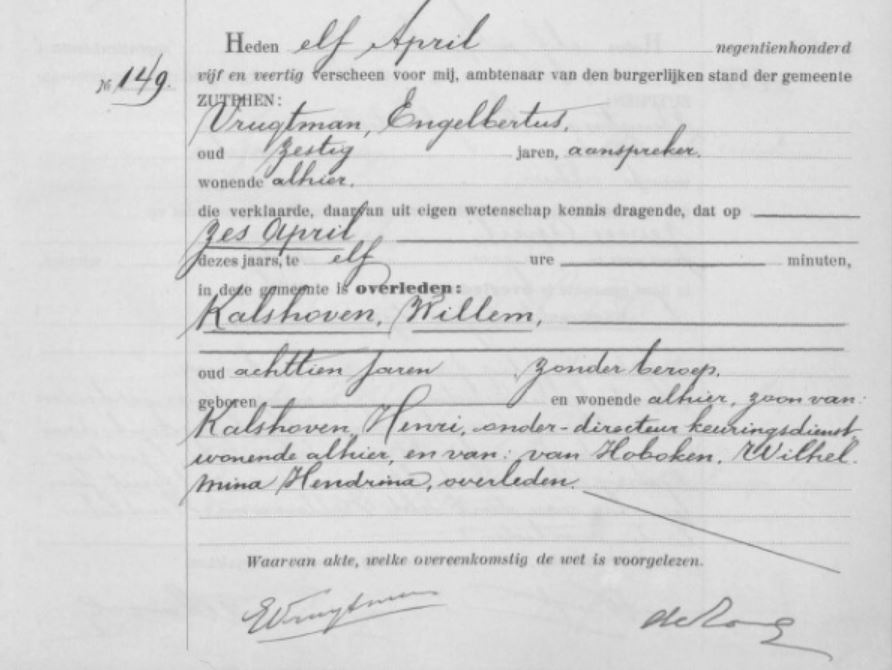 Heden elf April negentienhonderd
№ 149. vijf en veertig verscheen voor mij, ambtenaar van den burgerlijken stand der gemeente
ZUTPHEN:
Vrugtman, Engelbertus,
oud zestig jaren, aanspreker.
wonende alhier.
die verklaarde, daarvan uit eigen wetenschap kennis dragende, dat op
zes April
dezes jaars, te elf ure minuten,
in deze gemeente is overleden:
Kalshoven, Willem,
oud achttien jaren zonder beroep,
geboren en wonende alhier, zoon van:
Kalshoven, Henri, onder-directeur keuringsdienst,
wonende alhier, en van: van Hoboken, Wilhel-
mina Hendrina, overleden.
Waarvan akte, welke overeenkomstig de wet is voorgelezen.
EVrugtman de Jong